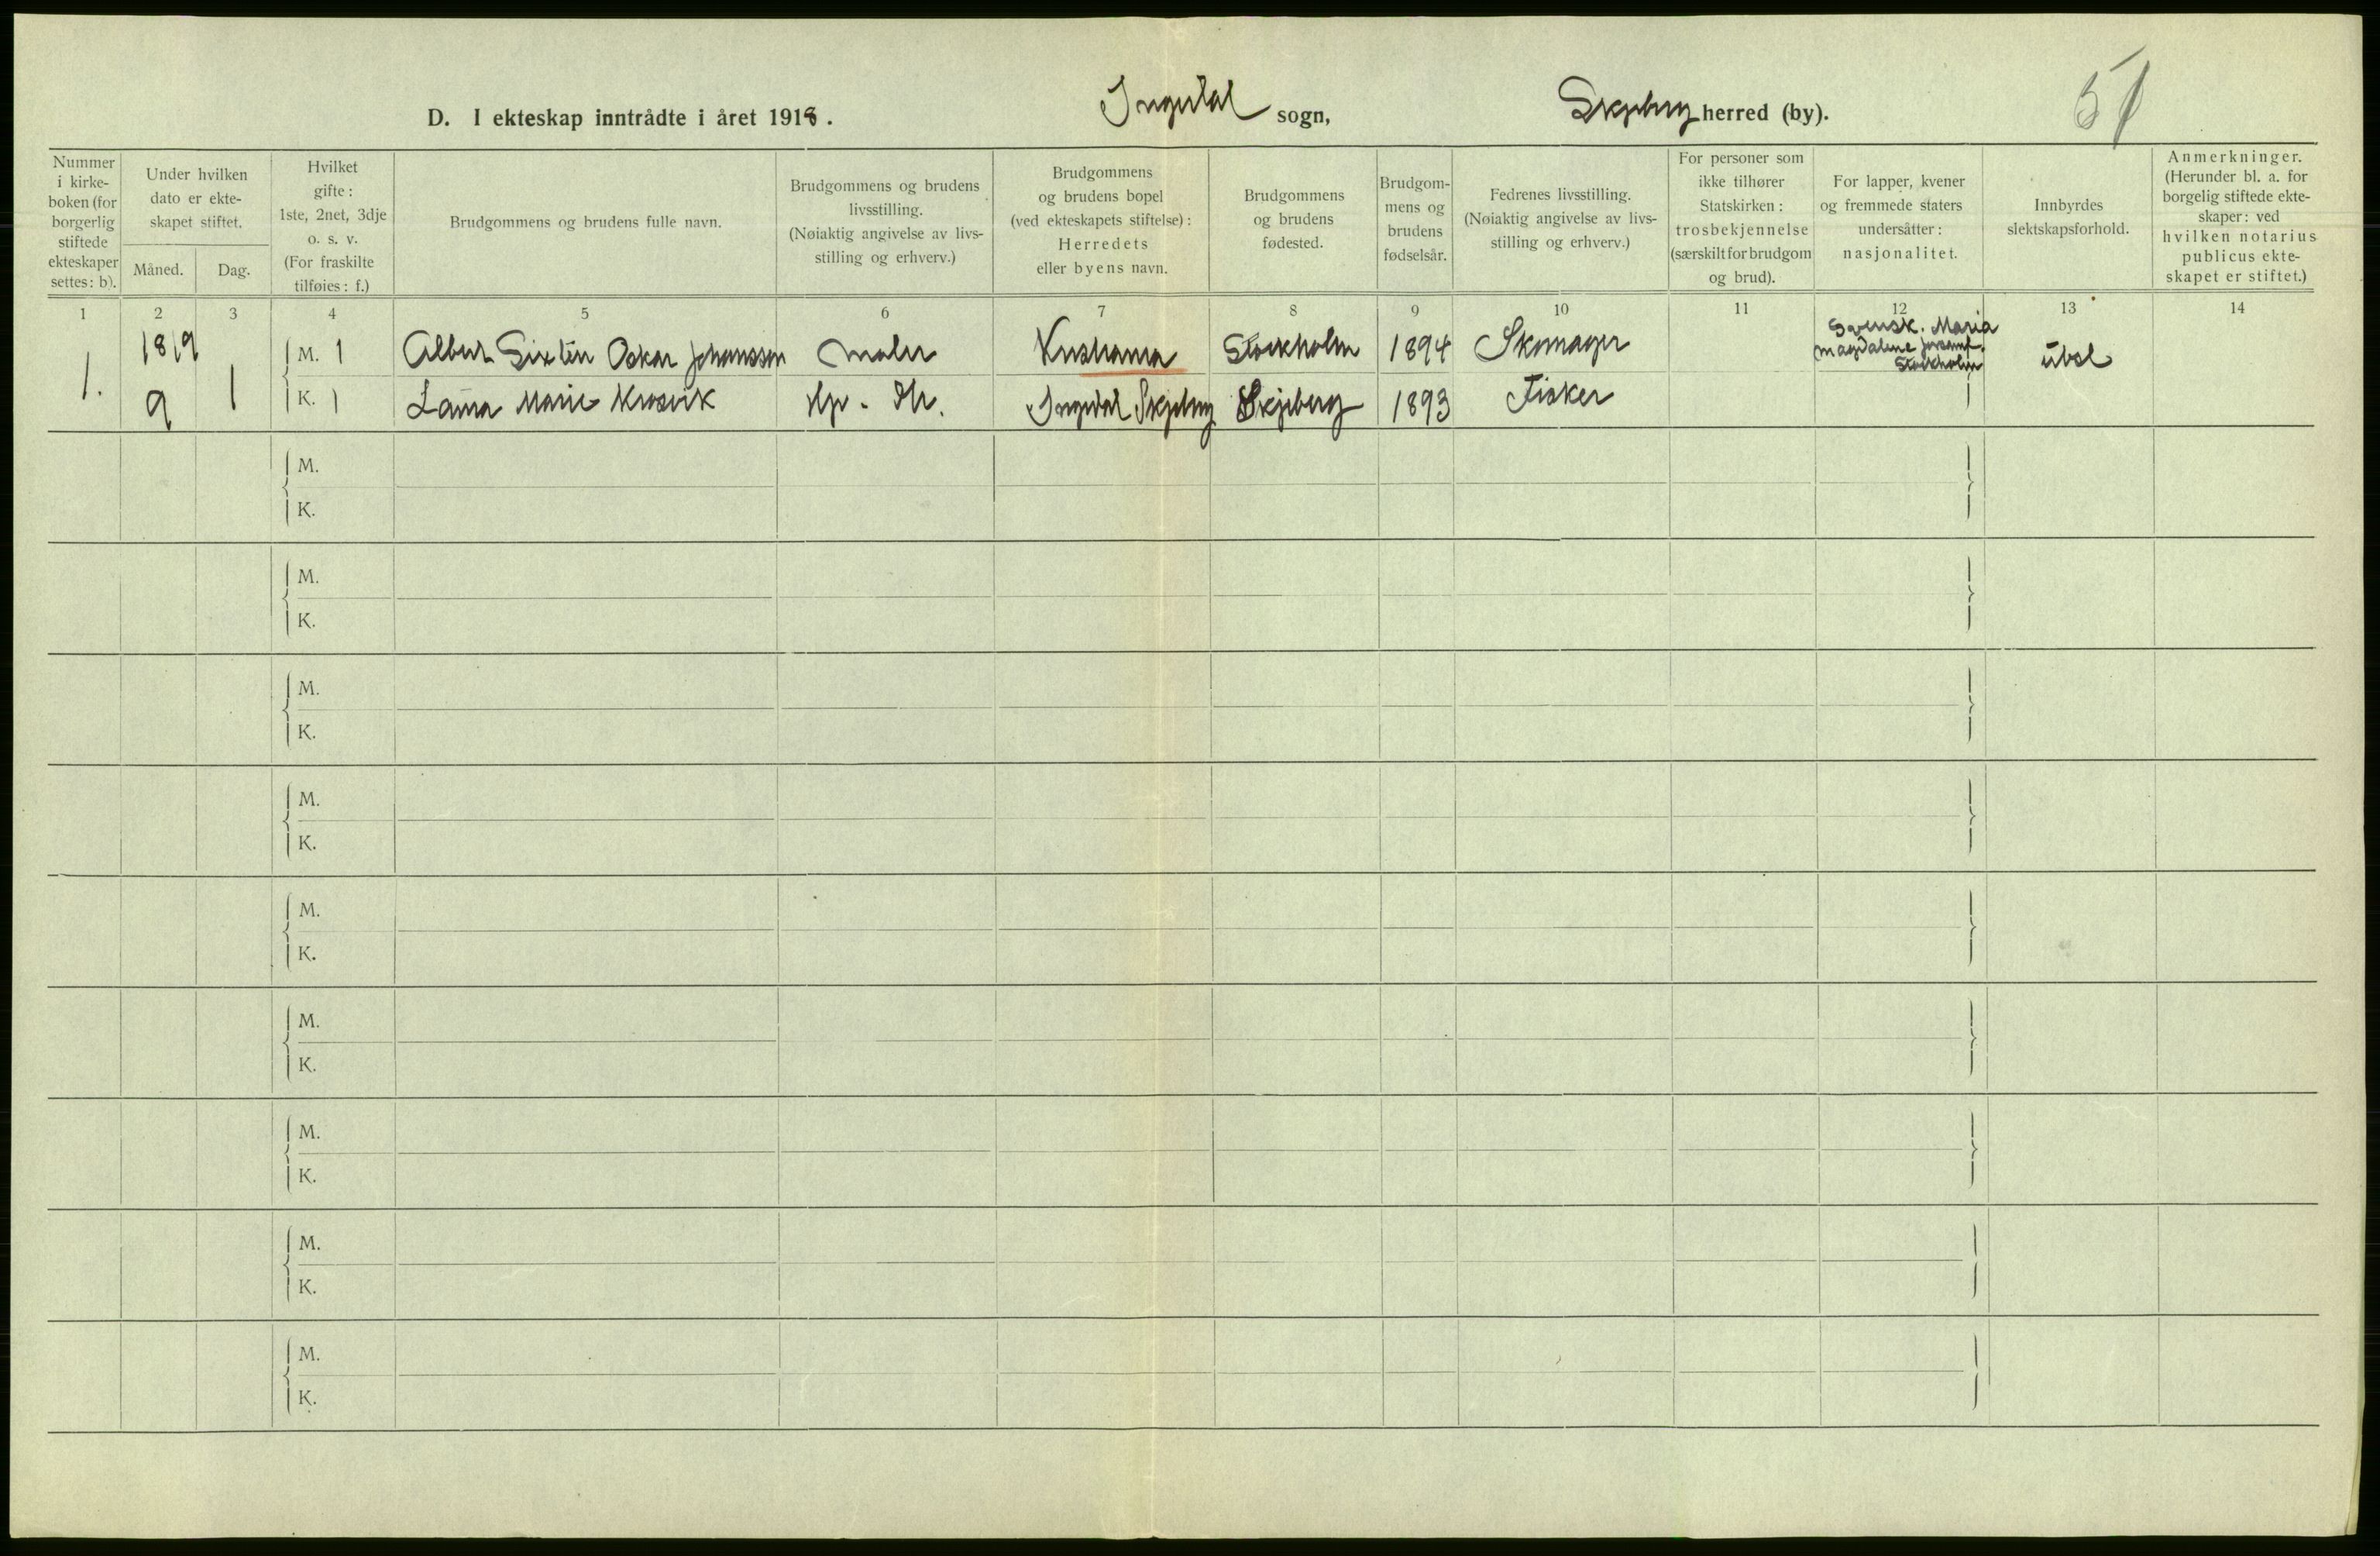 51
D. I ekteskap inntrådte i året 1918. Ingedal sogn, Skjeberg herred (by).
Nummer i kirke-boken (for borgerlig stiftede ekteskaper settes: b).
Under hvilken dato er ekte-skapet stiftet.
Måned. Dag.
Hvilket gifte: 1ste, 2net, 3dje o. s. v. (For fraskilte tilføies: f.)
Brudgommens og brudens fulle navn.
Brudgommens og brudens livsstilling. (Nøiaktig angivelse av livs-stilling og erhverv.)
Brudgommens og brudens bopel (ved ekteskapets stiftelse): Herredets eller byens navn.
Brudgommens og brudens fødested.
Brudgom-mens og brudens fødselsår.
Fedrenes livsstilling. (Nøiaktig angivelse av livs-stilling og erhverv.)
For personer som ikke tilhører Statskirken: trosbekjennelse (særskilt for brudgom og brud).
For lapper, kvener og fremmede staters undersåtter: nasjonalitet.
Innbyrdes slektskapsforhold.
Anmerkninger. (Herunder bl. a. for borgelig stiftede ekte-skaper: ved hvilken notarius publicus ekte-skapet er stiftet.)
1 2 3 4 5 6 7 8 9 10 11 12 13 14
1. 1819 9 1
M. 1 Albert Sixten Oskar Johansson maler Kristiania Stockholm 1894 Skomager Svensk. Maria Magdalene Stockholm ubsl
K. 1 Laura Marie Krosvik Ingedal Skjeberg Skjeberg 1893 Fisker
M.
K.
M.
K.
M.
K.
M.
K.
M.
K.
M.
K.
M.
K.
M.
K.
M.
K.